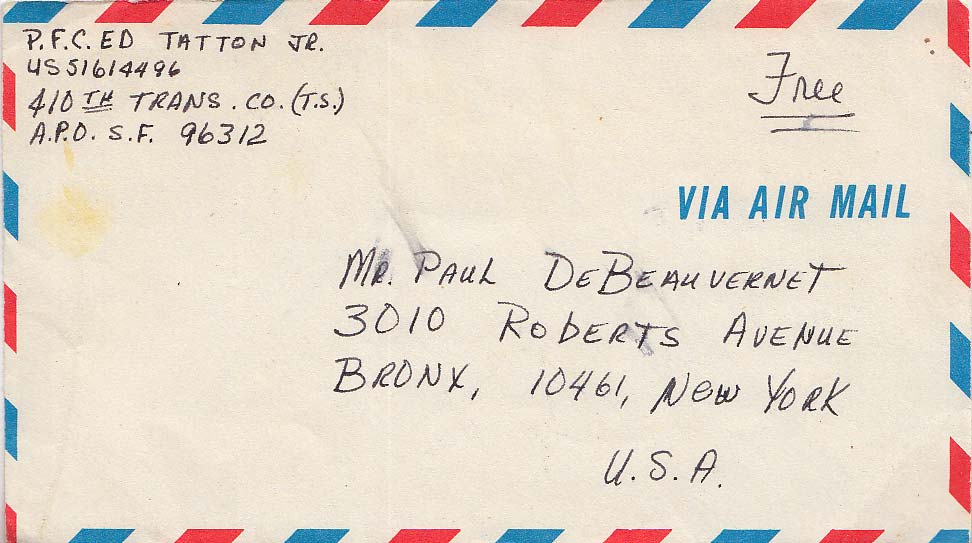 P.F.C. ED TATTON JR.
US51614496
410TH TRANS. CO. (T.S.)
A.P.O. S.F. 96312
Free
VIA AIR MAIL
MR. PAUL DEBEAUVERNET
3010 ROBERTS AVENUE
BRONX, 10461, NEW YORK
U.S.A.